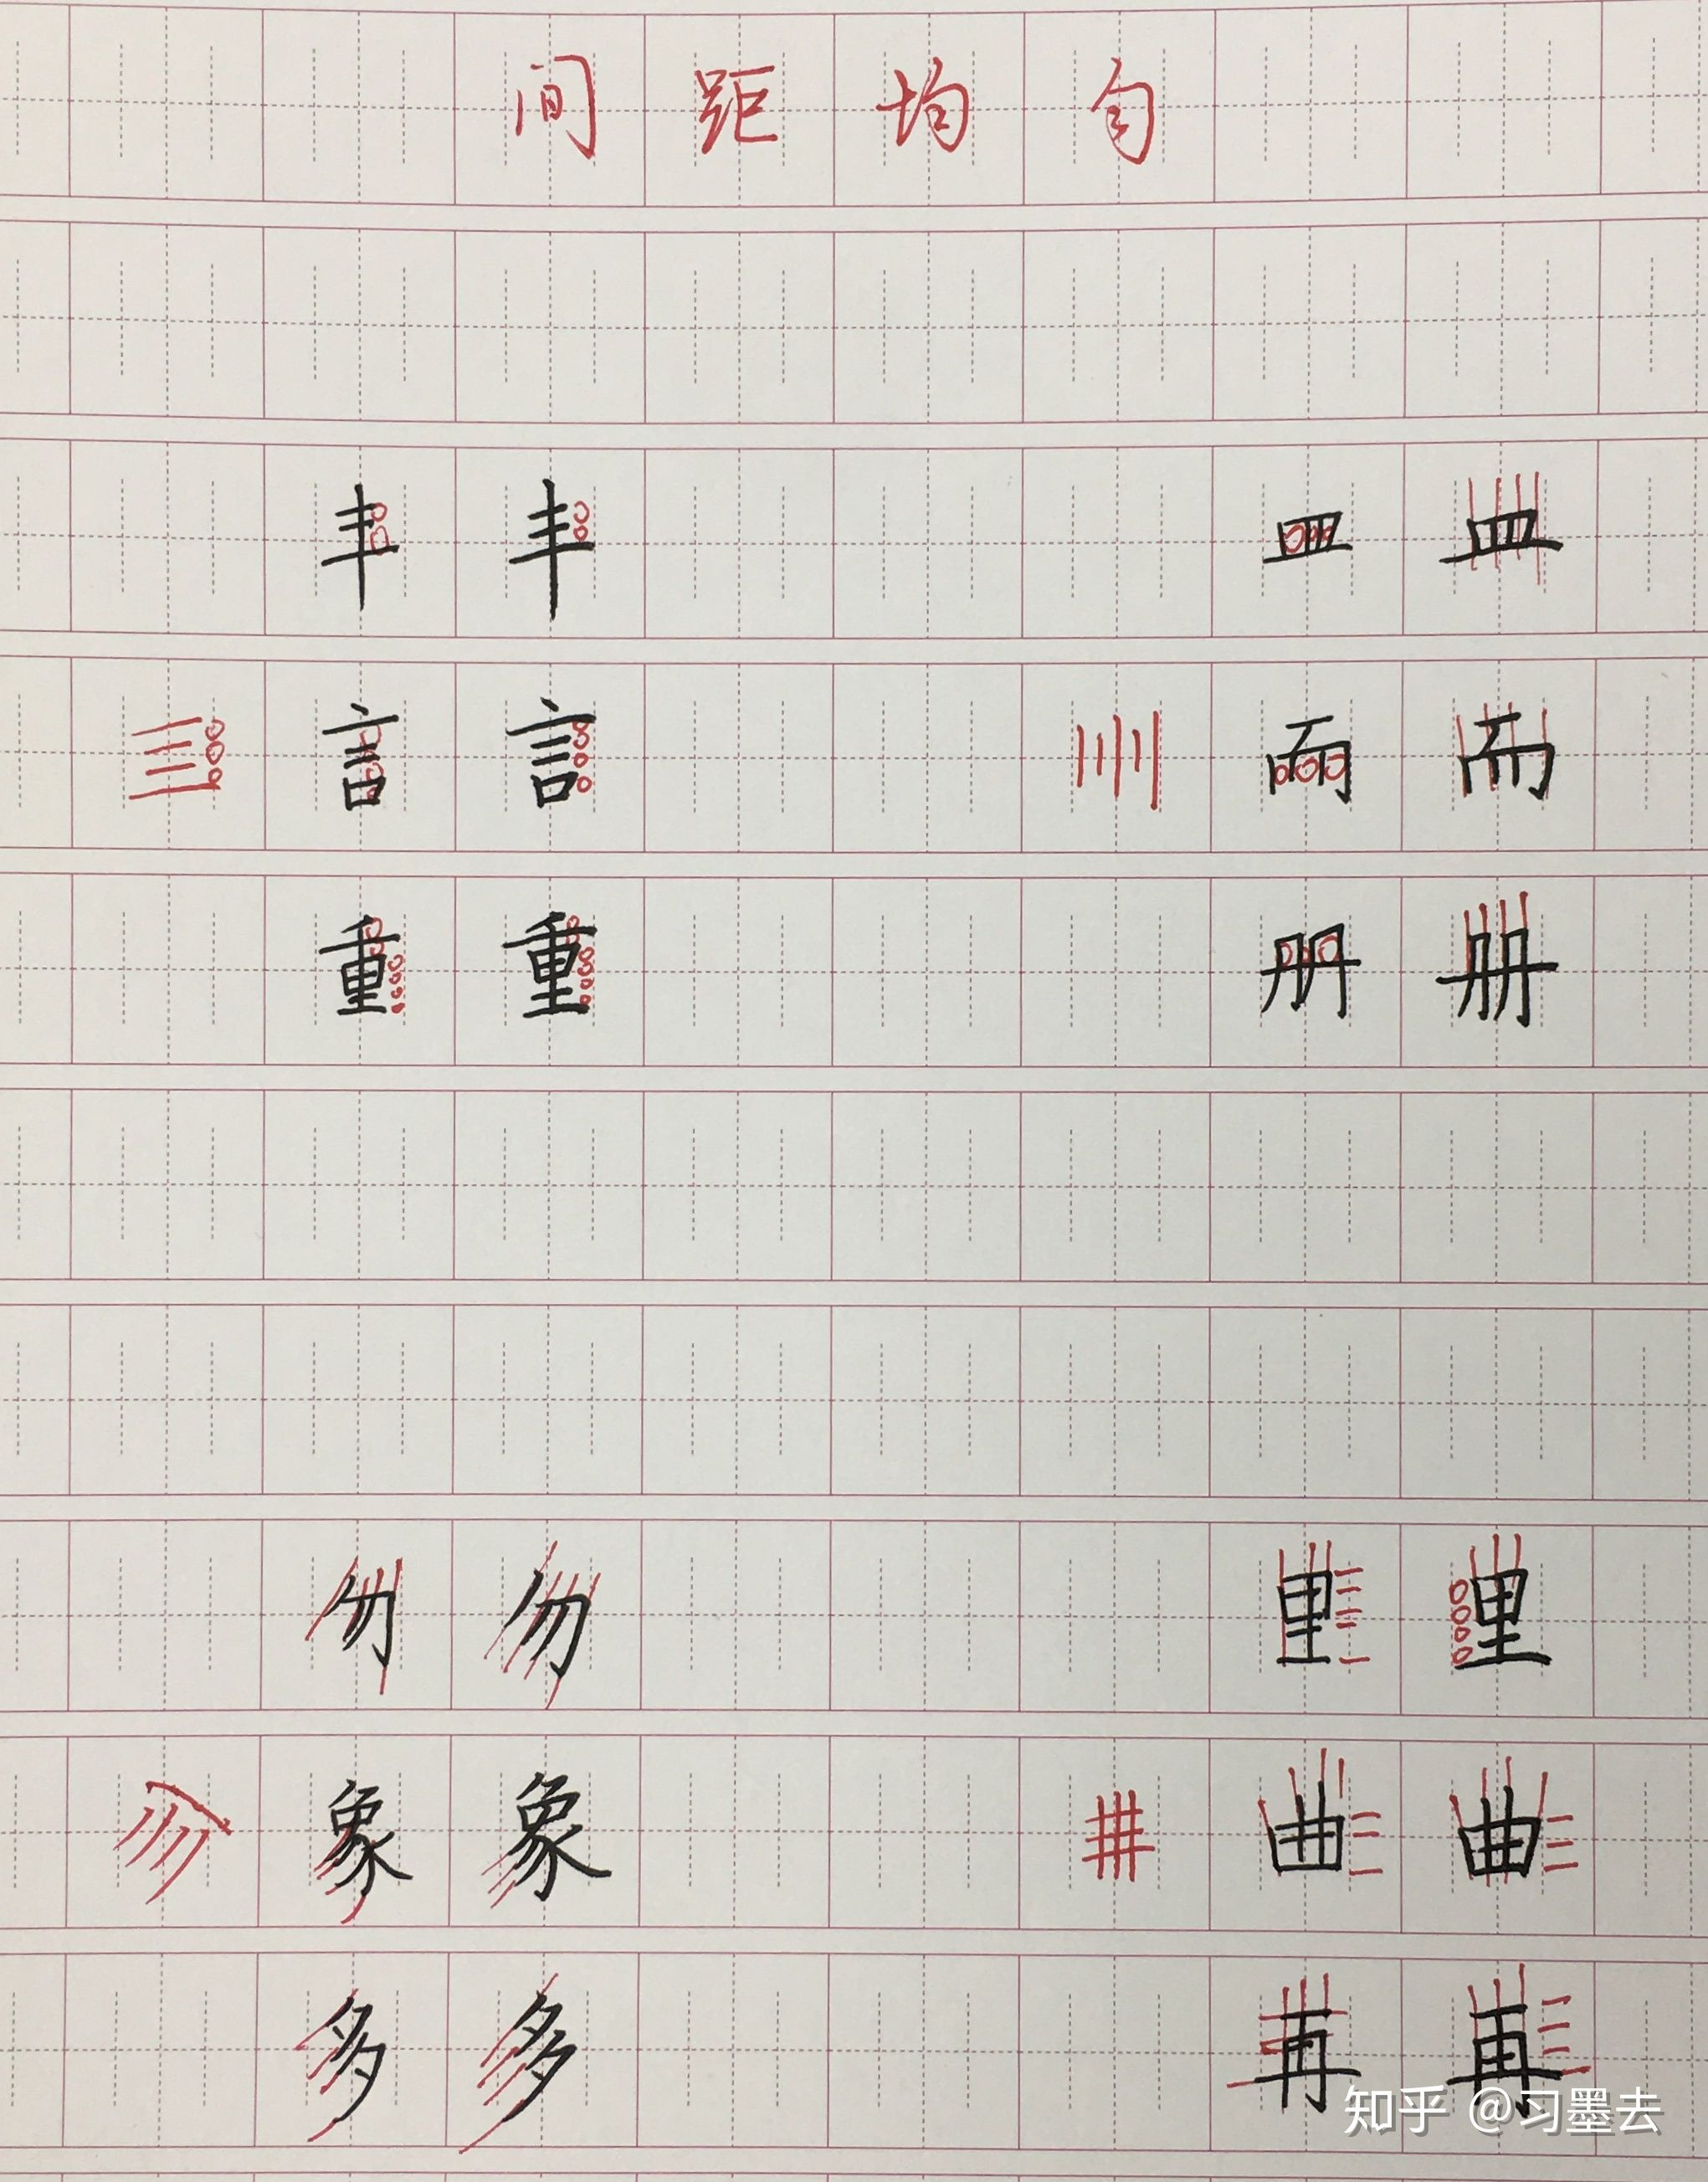 间距均匀
丰 丰 皿 皿
言 言 而 而
重 重 册 册
勿 勿 里 里
象 象 曲 曲
多 多 再 再
知乎 @习墨去